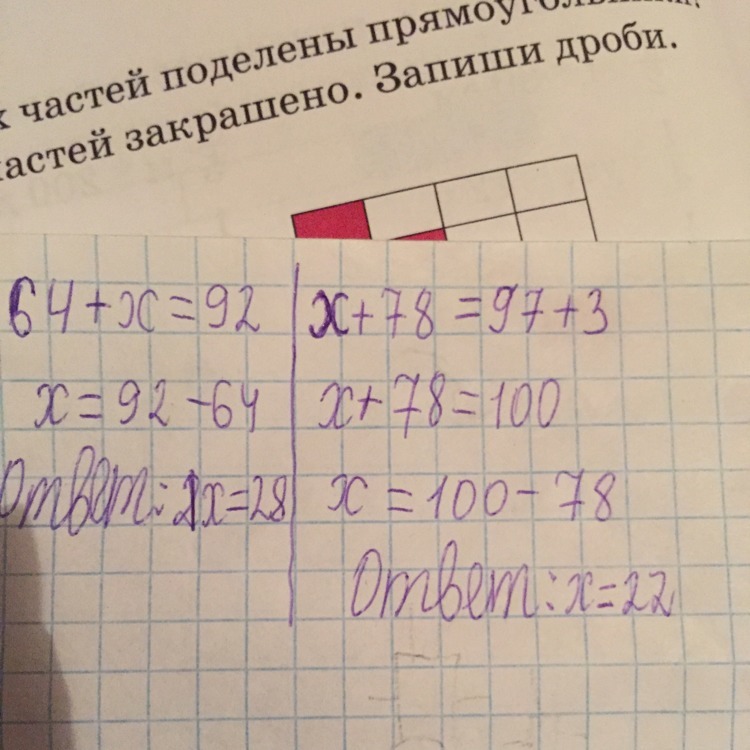 частей поделены
частей закрашено. Запиши дроби.
64+x=92
x=92-64
Ответ: x=28
x+78=97+3
x+78=100
x=100-78
Ответ: x=22